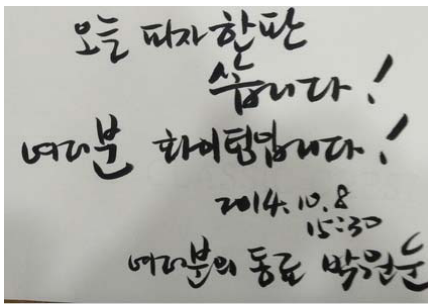 오늘 피자 한판
쏩니다!
여러분 화이팅입니다!
2014.10.8
15:30
여러분의 동료 박원순